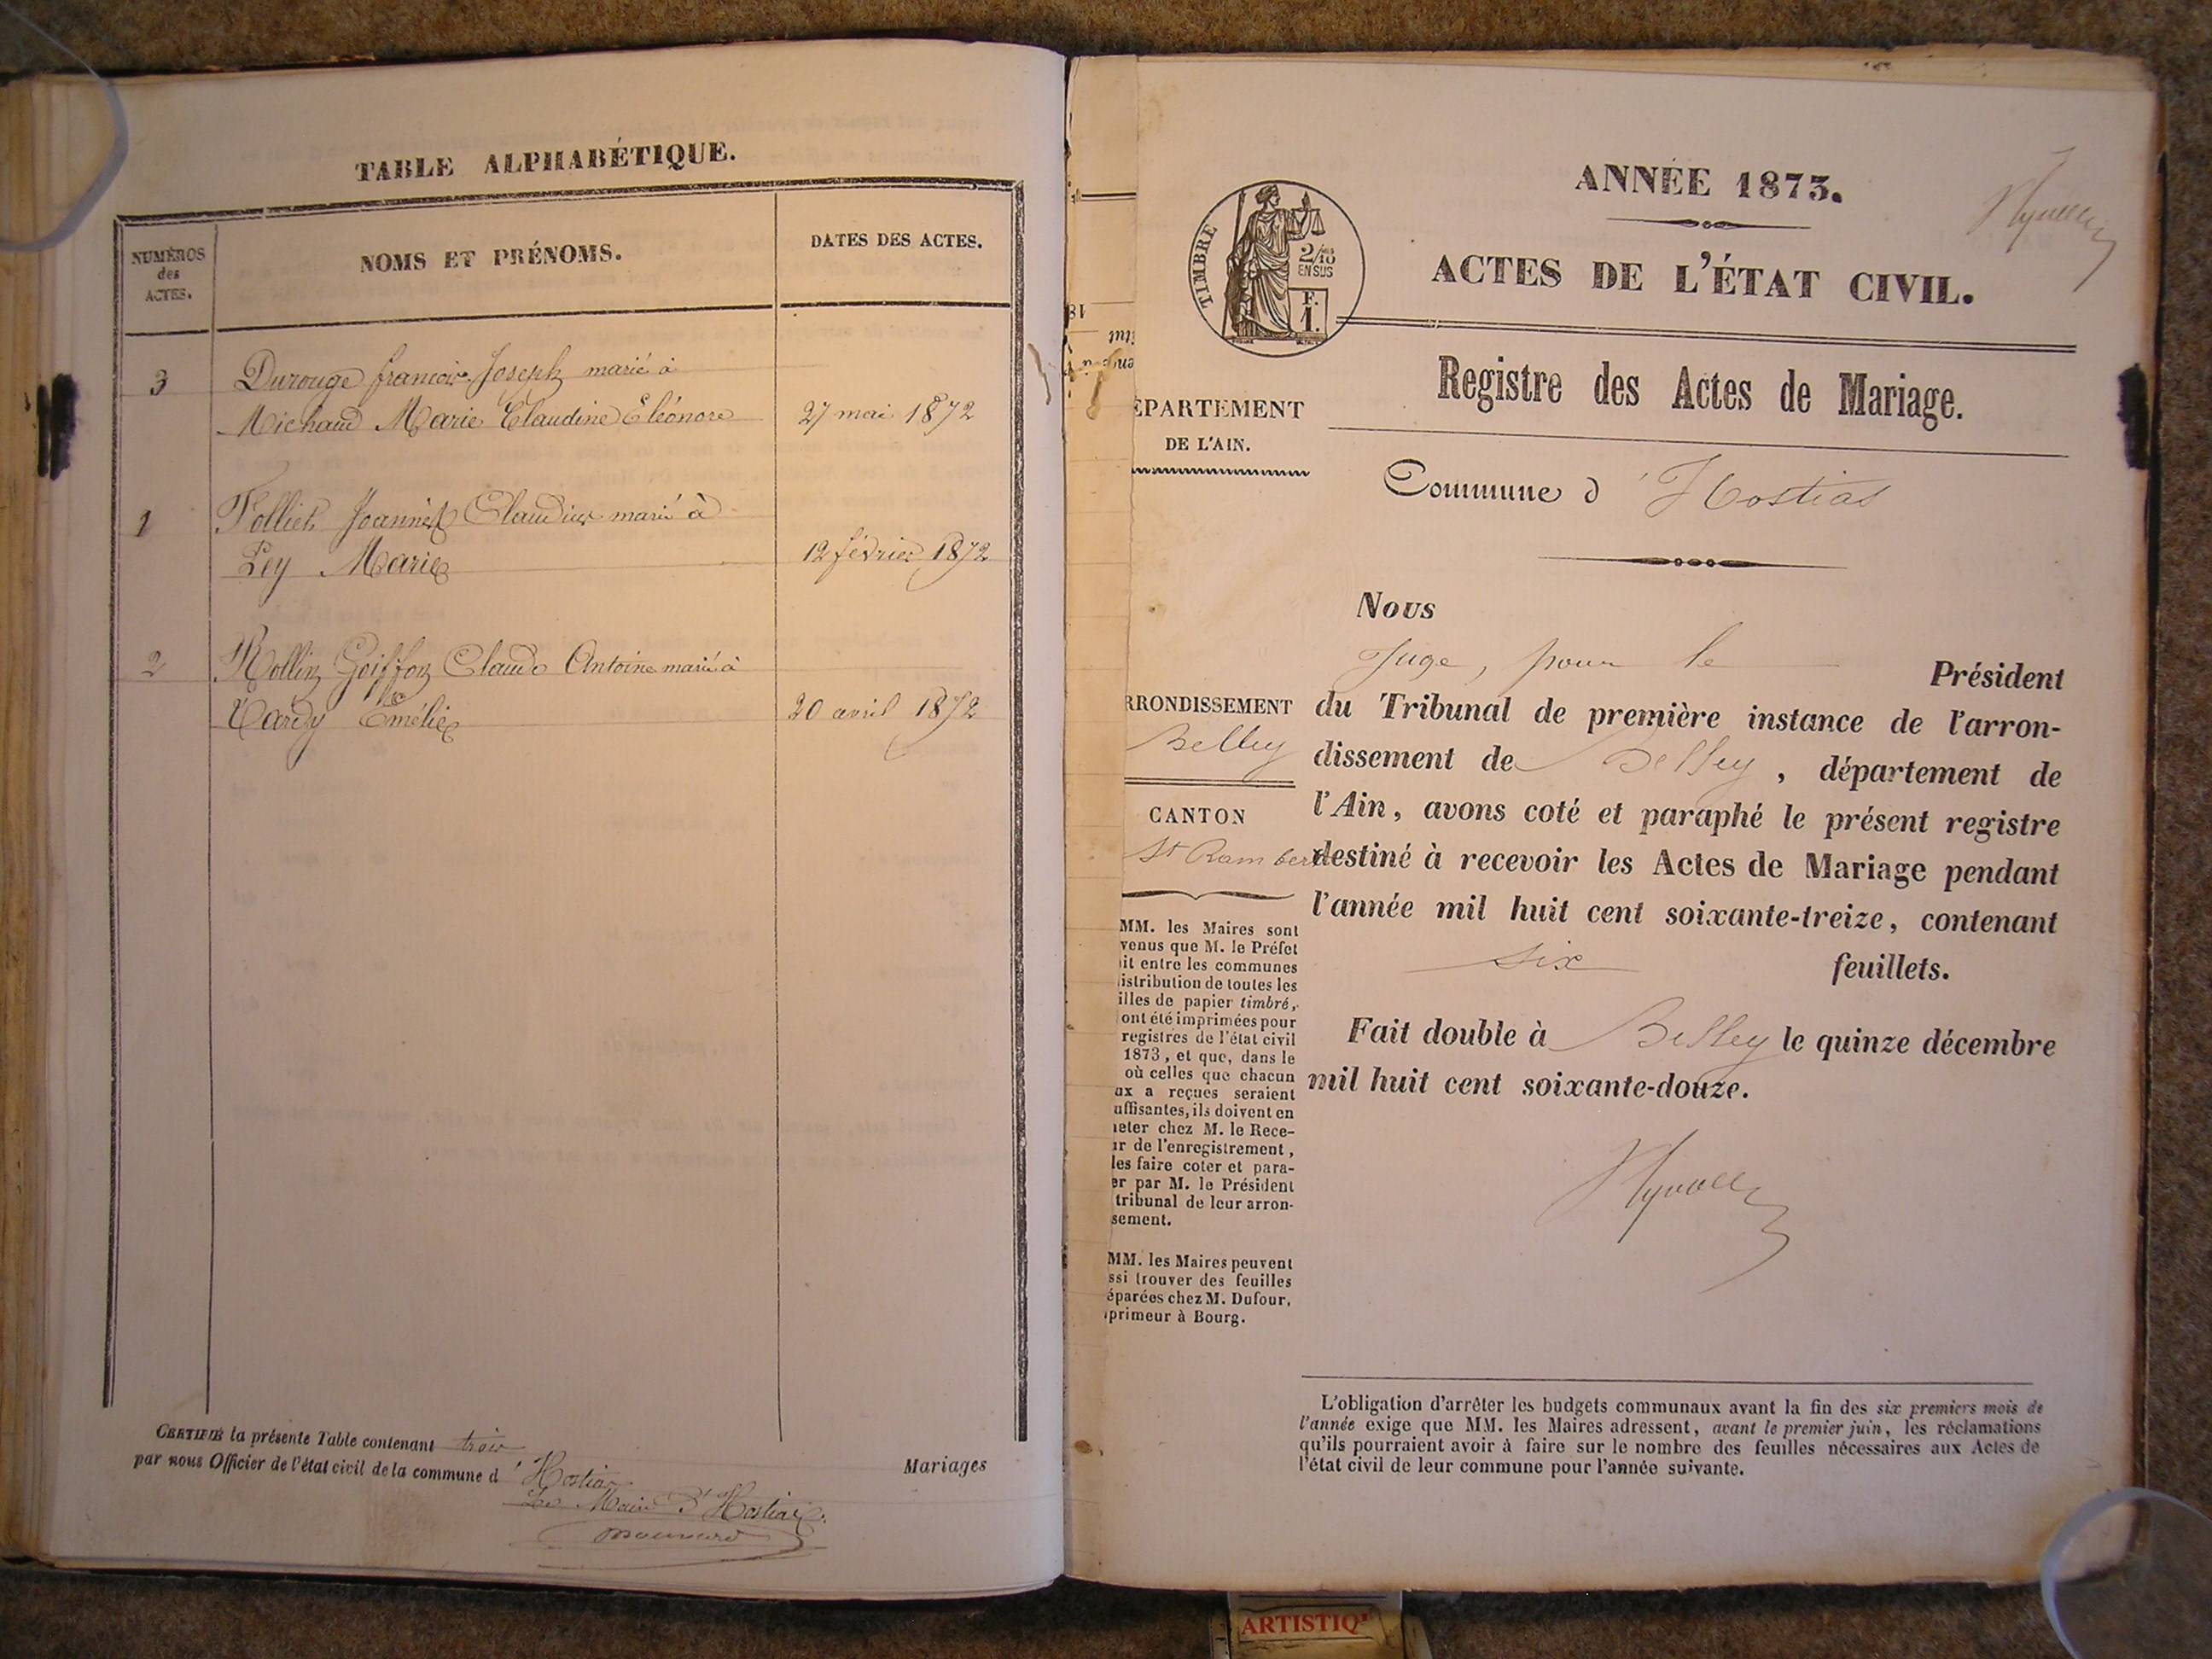 TABLE ALPHABÉTIQUE.
NUMÉROS des ACTES.
NOMS ET PRÉNOMS.
DATES DES ACTES.
3 Durouge françois Joseph marié à
Michaud Marie Claudine Eléonore 27 mai 1872
1 Folliet Joannès Claudius marié à
Ley Marie 12 février 1872
2 Rollin Goiffon Claude Antoine marié à
Tardy Emélie 20 avril 1872
CERTIFIÉ la présente Table contenant trois Mariages
par nous Officier de l'état civil de la commune d'Hostias
Le Maire d'Hostias
ANNÉE 1873.
ACTES DE L'ÉTAT CIVIL.
TIMBRE
2/10
EN SUS
F.
1.
Registre des Actes de Mariage.
ÉPARTEMENT
DE L'AIN.
Commune d'Hostias
Nous
Juge, pour le Président
du Tribunal de première instance de l'arron-
dissement de Belley, département de
l'Ain, avons coté et paraphé le présent registre
destiné à recevoir les Actes de Mariage pendant
l'année mil huit cent soixante-treize, contenant
six feuillets.
Fait double à Belley le quinze décembre
mil huit cent soixante-douze.
RRONDISSEMENT
Belley
CANTON
St Rambert
MM. les Maires sont
venus que M. le Préfet
it entre les communes
istribution de toutes les
illes de papier timbré,
ont été imprimées pour
registres de l'état civil
1873, et que, dans le
où celles que chacun
ux a reçues seraient
uffisantes, ils doivent en
eter chez M. le Rece-
ur de l'enregistrement,
les faire coter et para-
er par M. le Président
tribunal de leur arron-
sement.
MM. les Maires peuvent
ssi trouver des feuilles
éparées chez M. Dufour,
primeur à Bourg.
L'obligation d'arrêter les budgets communaux avant la fin des six premiers mois de
l'année exige que MM. les Maires adressent, avant le premier juin, les réclamations
qu'ils pourraient avoir à faire sur le nombre des feuilles nécessaires aux Actes de
l'état civil de leur commune pour l'année suivante.
ARTISTIQ